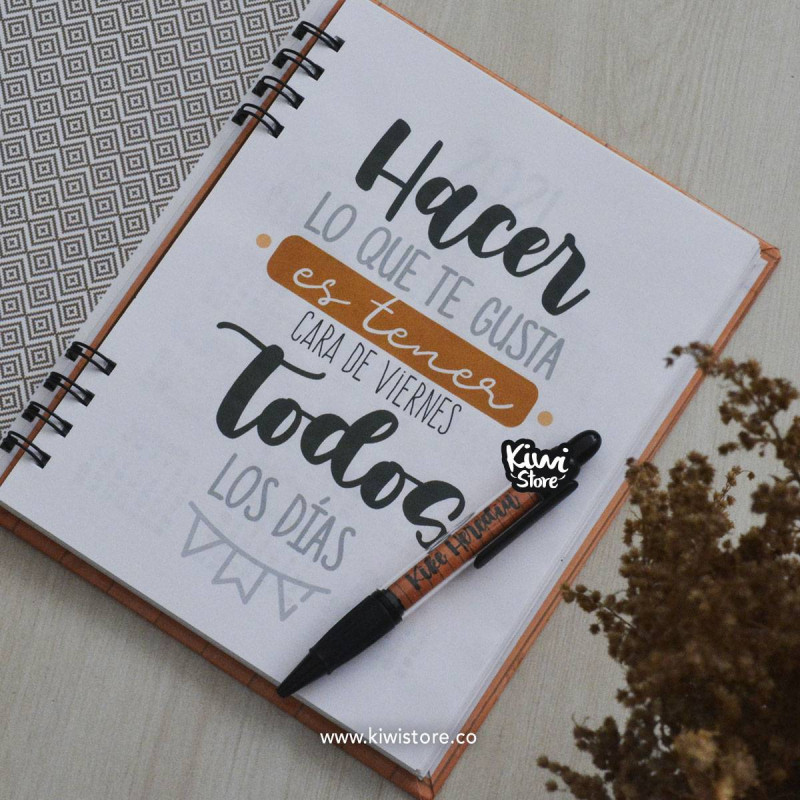 Hacer
LO QUE TE GUSTA
es tener
CARA DE VIERNES
Todos
LOS DÍAS
Kiwi
Store
www.kiwistore.co